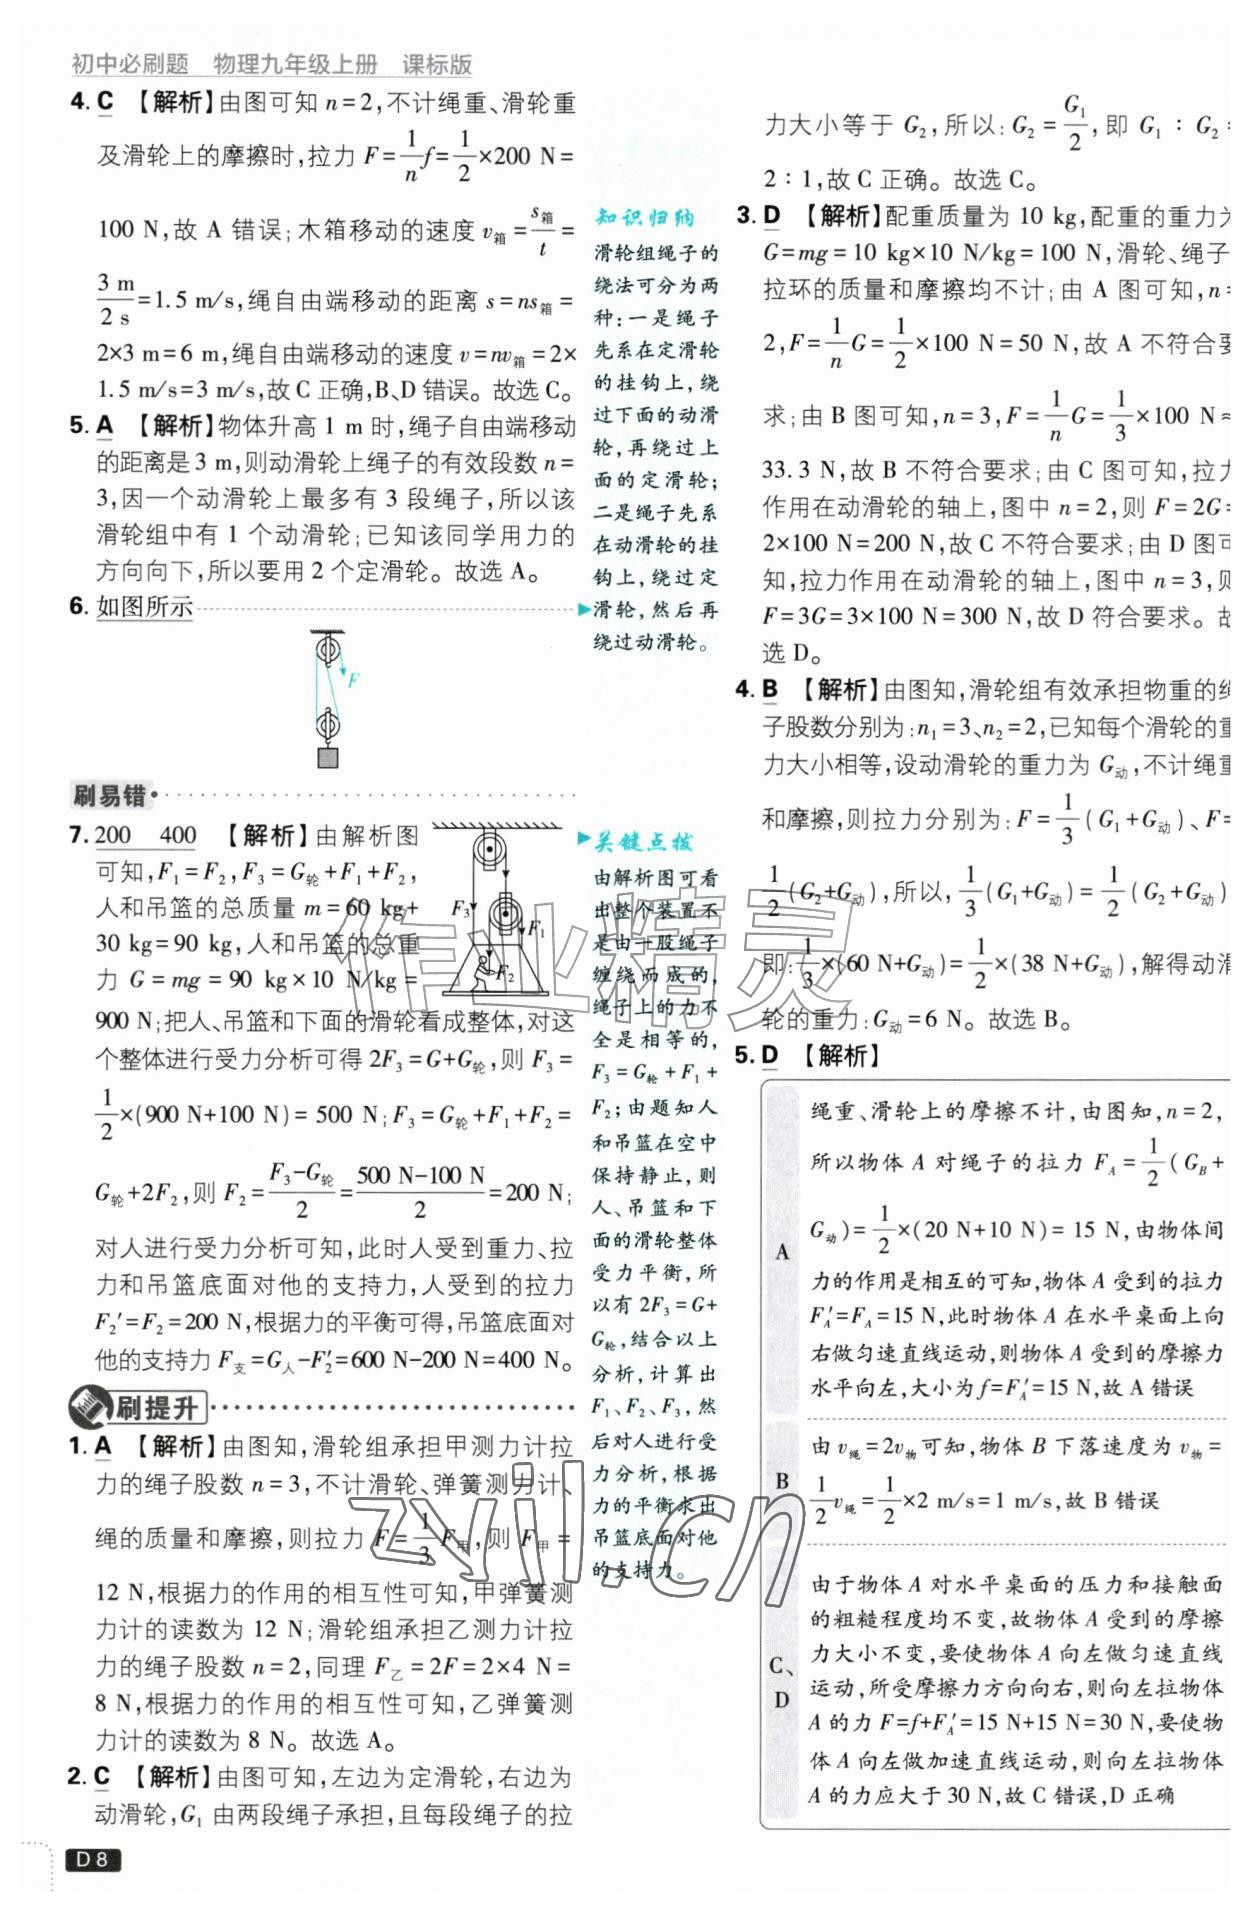 初中必刷题 物理九年级上册 课标版
4. C 【解析】由图可知 n=2,不计绳重、滑轮重
及滑轮上的摩擦时,拉力 F=1/n f=1/2×200 N=
100 N,故 A 错误;木箱移动的速度 v箱=s箱/t=
3 m/2 s=1.5 m/s,绳自由端移动的距离 s=ns箱=
2×3 m=6 m,绳自由端移动的速度 v=nv箱=2×
1.5 m/s=3 m/s,故 C 正确,B、D 错误。故选 C。
5. A 【解析】物体升高 1 m 时,绳子自由端移动
的距离是 3 m,则动滑轮上绳子的有效段数 n=
3,因一个动滑轮上最多有 3 段绳子,所以该
滑轮组中有 1 个动滑轮;已知该同学用力的
方向向下,所以要用 2 个定滑轮。故选 A。
6. 如图所示
F
刷易错
7. 200 400 【解析】由解析图
可知,F₁=F₂,F₃=G轮+F₁+F₂,
人和吊篮的总质量 m=60 kg+
30 kg=90 kg,人和吊篮的总重
力 G=mg=90 kg×10 N/kg=
F₃
F₁
F₂
900 N;把人、吊篮和下面的滑轮看成整体,对这
个整体进行受力分析可得 2F₃=G+G轮,则 F₃=
1/2×(900 N+100 N)=500 N;F₃=G轮+F₁+F₂=
G轮+2F₂,则 F₂=(F₃-G轮)/2=(500 N-100 N)/2=200 N;
对人进行受力分析可知,此时人受到重力、拉
力和吊篮底面对他的支持力,人受到的拉力
F₂′=F₂=200 N,根据力的平衡可得,吊篮底面对
他的支持力 F支=G人-F₂′=600 N-200 N=400 N。
刷提升
1. A 【解析】由图知,滑轮组承担甲测力计拉
力的绳子股数 n=3,不计滑轮、弹簧测力计、
绳的质量和摩擦,则拉力 F=1/3 F甲,则 F甲=
12 N,根据力的作用的相互性可知,甲弹簧测
力计的读数为 12 N;滑轮组承担乙测力计拉
力的绳子股数 n=2,同理 F乙=2F=2×4 N=
8 N,根据力的作用的相互性可知,乙弹簧测
力计的读数为 8 N。故选 A。
2. C 【解析】由图可知,左边为定滑轮,右边为
动滑轮,G₁ 由两段绳子承担,且每段绳子的拉
D 8
知识归纳
滑轮组绳子的
绕法可分为两
种:一是绳子
先系在定滑轮
的挂钩上,绕
过下面的动滑
轮,再绕过上
面的定滑轮;
二是绳子先系
在动滑轮的挂
钩上,绕过定
滑轮,然后再
绕过动滑轮。
关键点拨
由解析图可看
出整个装置不
是由一股绳子
缠绕而成的,
绳子上的力不
全是相等的,
F₃=G轮+F₁+
F₂;由题知人
和吊篮在空中
保持静止,则
人、吊篮和下
面的滑轮整体
受力平衡,所
以有 2F₃=G+
G轮,结合以上
分析,计算出
F₁、F₂、F₃,然
后对人进行受
力分析,根据
力的平衡求出
吊篮底面对他
的支持力。
力大小等于 G₂,所以:G₂=G₁/2,即 G₁∶G₂=
2∶1,故 C 正确。故选 C。
3. D 【解析】配重质量为 10 kg,配重的重力为
G=mg=10 kg×10 N/kg=100 N,滑轮、绳子
拉环的质量和摩擦均不计;由 A 图可知,n=
2,F=1/n G=1/2×100 N=50 N,故 A 不符合要
求;由 B 图可知,n=3,F=1/n G=1/3×100 N≈
33.3 N,故 B 不符合要求;由 C 图可知,拉力
作用在动滑轮的轴上,图中 n=2,则 F=2G=
2×100 N=200 N,故 C 不符合要求;由 D 图可
知,拉力作用在动滑轮的轴上,图中 n=3,则
F=3G=3×100 N=300 N,故 D 符合要求。故
选 D。
4. B 【解析】由图知,滑轮组有效承担物重的绳
子股数分别为:n₁=3、n₂=2,已知每个滑轮的重
力大小相等,设动滑轮的重力为 G动,不计绳重
和摩擦,则拉力分别为:F=1/3(G₁+G动)、F=
1/2(G₂+G动),所以,1/3(G₁+G动)=1/2(G₂+G动)
即:1/3×(60 N+G动)=1/2×(38 N+G动),解得动滑
轮的重力:G动=6 N。故选 B。
5. D 【解析】
A
绳重、滑轮上的摩擦不计,由图知,n=2,
所以物体 A 对绳子的拉力 F_A=1/2(G_B+
G动)=1/2×(20 N+10 N)=15 N,由物体间
力的作用是相互的可知,物体 A 受到的拉力
F_A′=F_A=15 N,此时物体 A 在水平桌面上向
右做匀速直线运动,则物体 A 受到的摩擦力
水平向左,大小为 f=F_A′=15 N,故 A 错误
B
由 v绳=2v物可知,物体 B 下落速度为 v物=
1/2 v绳=1/2×2 m/s=1 m/s,故 B 错误
C、
D
由于物体 A 对水平桌面的压力和接触面
的粗糙程度均不变,故物体 A 受到的摩擦
力大小不变,要使物体 A 向左做匀速直线
运动,所受摩擦力方向向右,则向左拉物体
A 的力 F=f+F_A′=15 N+15 N=30 N,要使物
体 A 向左做加速直线运动,则向左拉物体
A 的力应大于 30 N,故 C 错误,D 正确
作业精灵
zyjl.cn